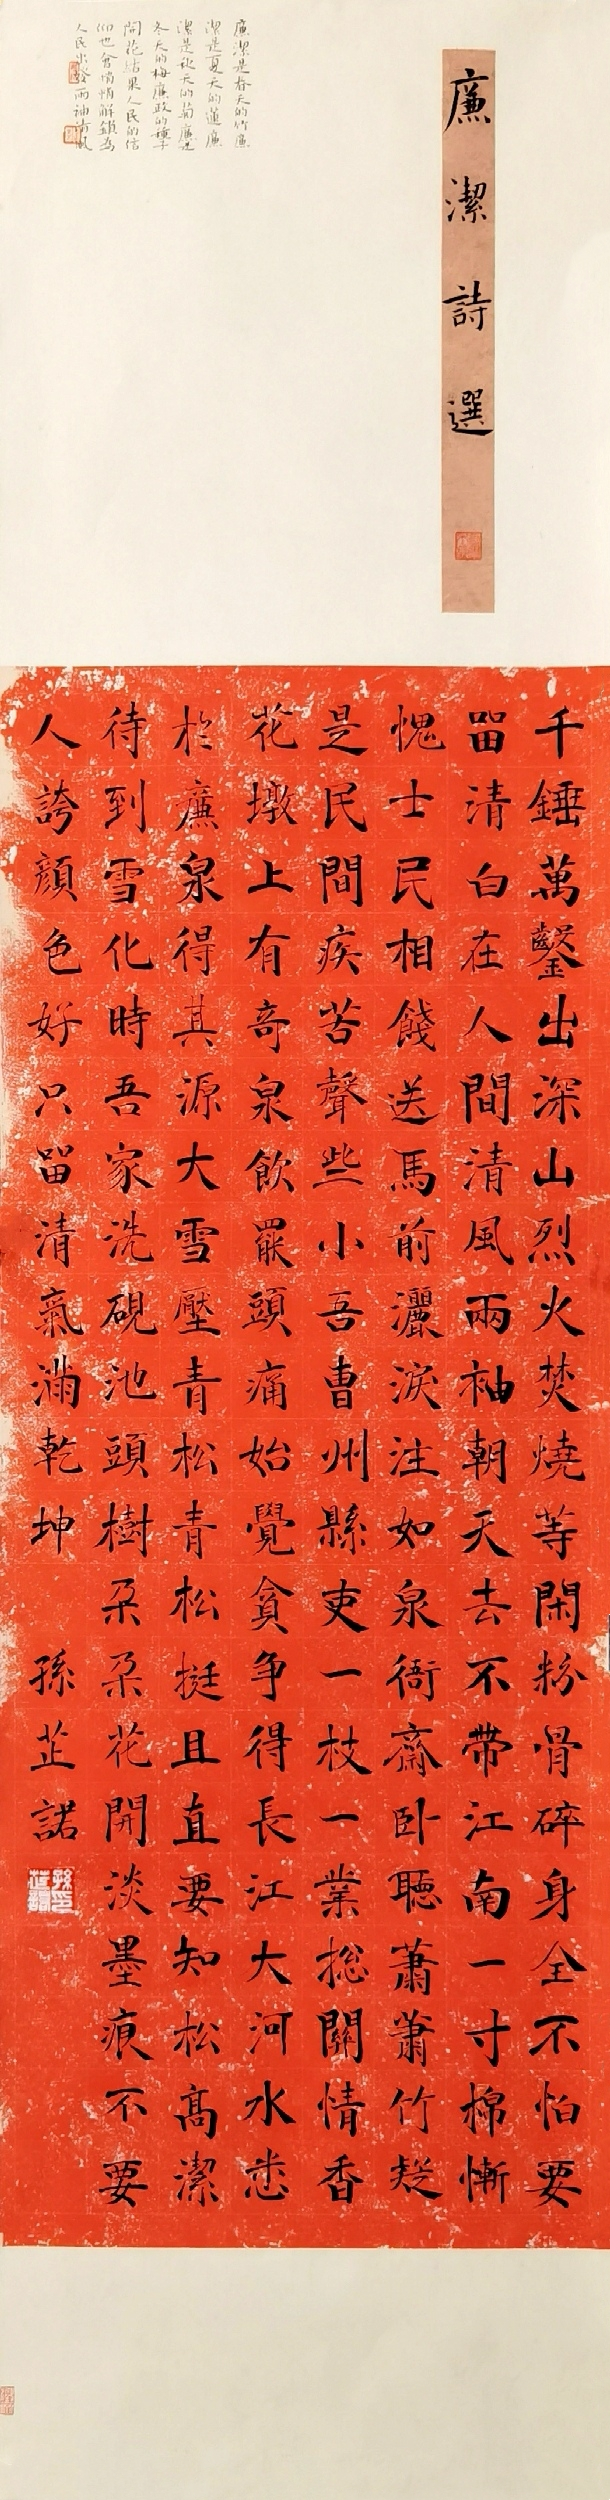 廉潔詩選
廉潔是春天的竹廉
潔是夏天的蓮廉
潔是秋天的菊廉是
冬天的梅廉政的種子
開花結果人民的信
仰也會悄悄解鎖為
人民出發兩袖清風
千錘萬鑿出深山烈火焚燒等閑粉骨碎身全不怕要
留清白在人間清風兩袖朝天去不帶江南一寸棉慚
愧士民相餞送馬前灑淚注如泉衙齋卧聽蕭蕭竹疑
是民間疾苦聲些小吾曹州縣吏一枝一業揔關情香
花墩上有奇泉飲罷頭痛始覺貪争得長江大河水悉
於廉泉得其源大雪壓青松青松挺且直要知松高潔
待到雪化時吾家洗硯池頭樹朵朵花開淡墨痕不要
人誇顏色好只留清氣滿乾坤 孫芷諾